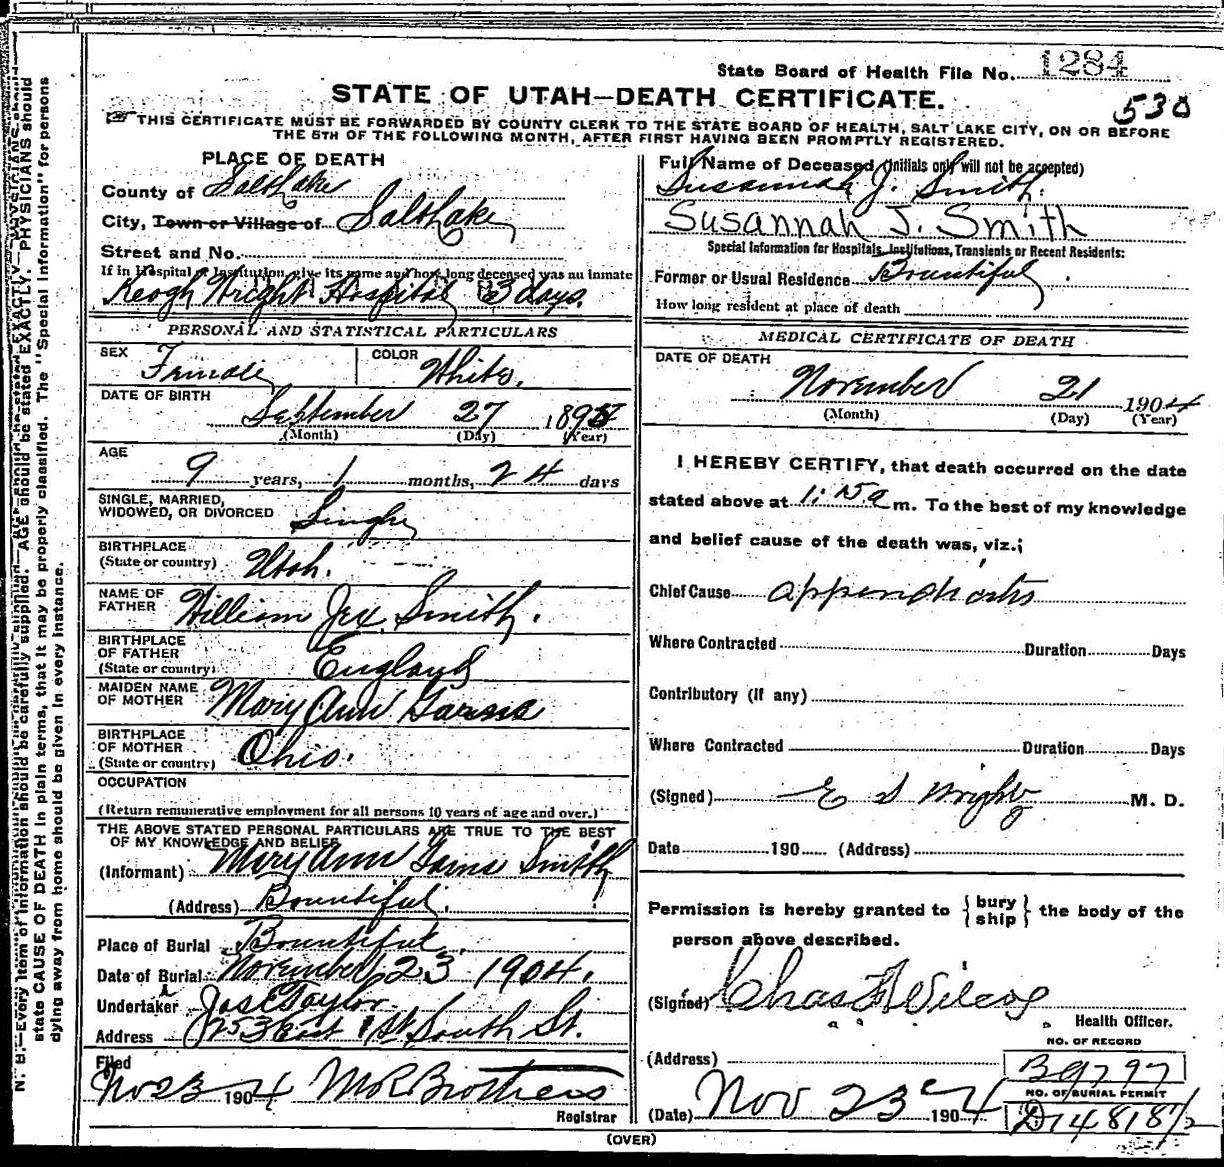 State Board of Health File No. 1284
STATE OF UTAH—DEATH CERTIFICATE.
530
☞THIS CERTIFICATE MUST BE FORWARDED BY COUNTY CLERK TO THE STATE BOARD OF HEALTH, SALT LAKE CITY, ON OR BEFORE
THE 5TH OF THE FOLLOWING MONTH, AFTER FIRST HAVING BEEN PROMPTLY REGISTERED.
PLACE OF DEATH
County of Salt Lake
City, Town or Village of Salt Lake
Street and No.
If in Hospital or Institution, give its name and how long deceased was an inmate
Keogh Wright Hospital 3 days.
PERSONAL AND STATISTICAL PARTICULARS
SEX Female COLOR White.
DATE OF BIRTH
September 27 189
(Month) (Day) (Year)
AGE
9 years, 1 months, 24 days
SINGLE, MARRIED,
WIDOWED, OR DIVORCED Single
BIRTHPLACE
(State or country) Utah.
NAME OF
FATHER William Jex Smith.
BIRTHPLACE
OF FATHER
(State or country) England
MAIDEN NAME
OF MOTHER Mary Ann
BIRTHPLACE
OF MOTHER
(State or country) Ohio.
OCCUPATION
(Return remunerative employment for all persons 10 years of age and over.)
THE ABOVE STATED PERSONAL PARTICULARS ARE TRUE TO THE BEST
OF MY KNOWLEDGE AND BELIEF
(Informant) Mary Ann Smith
(Address) Bountiful.
Place of Burial Bountiful.
Date of Burial November 23 1904.
Undertaker Jos E Taylor
Address 253 East 1st South St.
Filed
Nov 23 1904 Brothers
Registrar
Full Name of Deceased (Initials only will not be accepted)
Susannah J. Smith.
Susannah J. Smith
Special Information for Hospitals, Institutions, Transients or Recent Residents:
Former or Usual Residence Bountiful
How long resident at place of death
MEDICAL CERTIFICATE OF DEATH
DATE OF DEATH
November 21 1904
(Month) (Day) (Year)
I HEREBY CERTIFY, that death occurred on the date
stated above at 1:15 a m. To the best of my knowledge
and belief cause of the death was, viz.;
Chief Cause appendicitis
Where Contracted Duration Days
Contributory (if any)
Where Contracted Duration Days
(Signed) E S Wright M. D.
Date 190 (Address)
Permission is hereby granted to { bury ship } the body of the
person above described.
(Signed) Chas F Wilcox
Health Officer.
NO. OF RECORD
(Address) B9797
NO. OF BURIAL PERMIT
(Date) Nov 23 1904 D14818½
(OVER)
N. B.—Every item of information should be carefully supplied. AGE should be stated EXACTLY. PHYSICIANS should
state CAUSE OF DEATH in plain terms, that it may be properly classified. The "Special Information" for persons
dying away from home should be given in every instance.